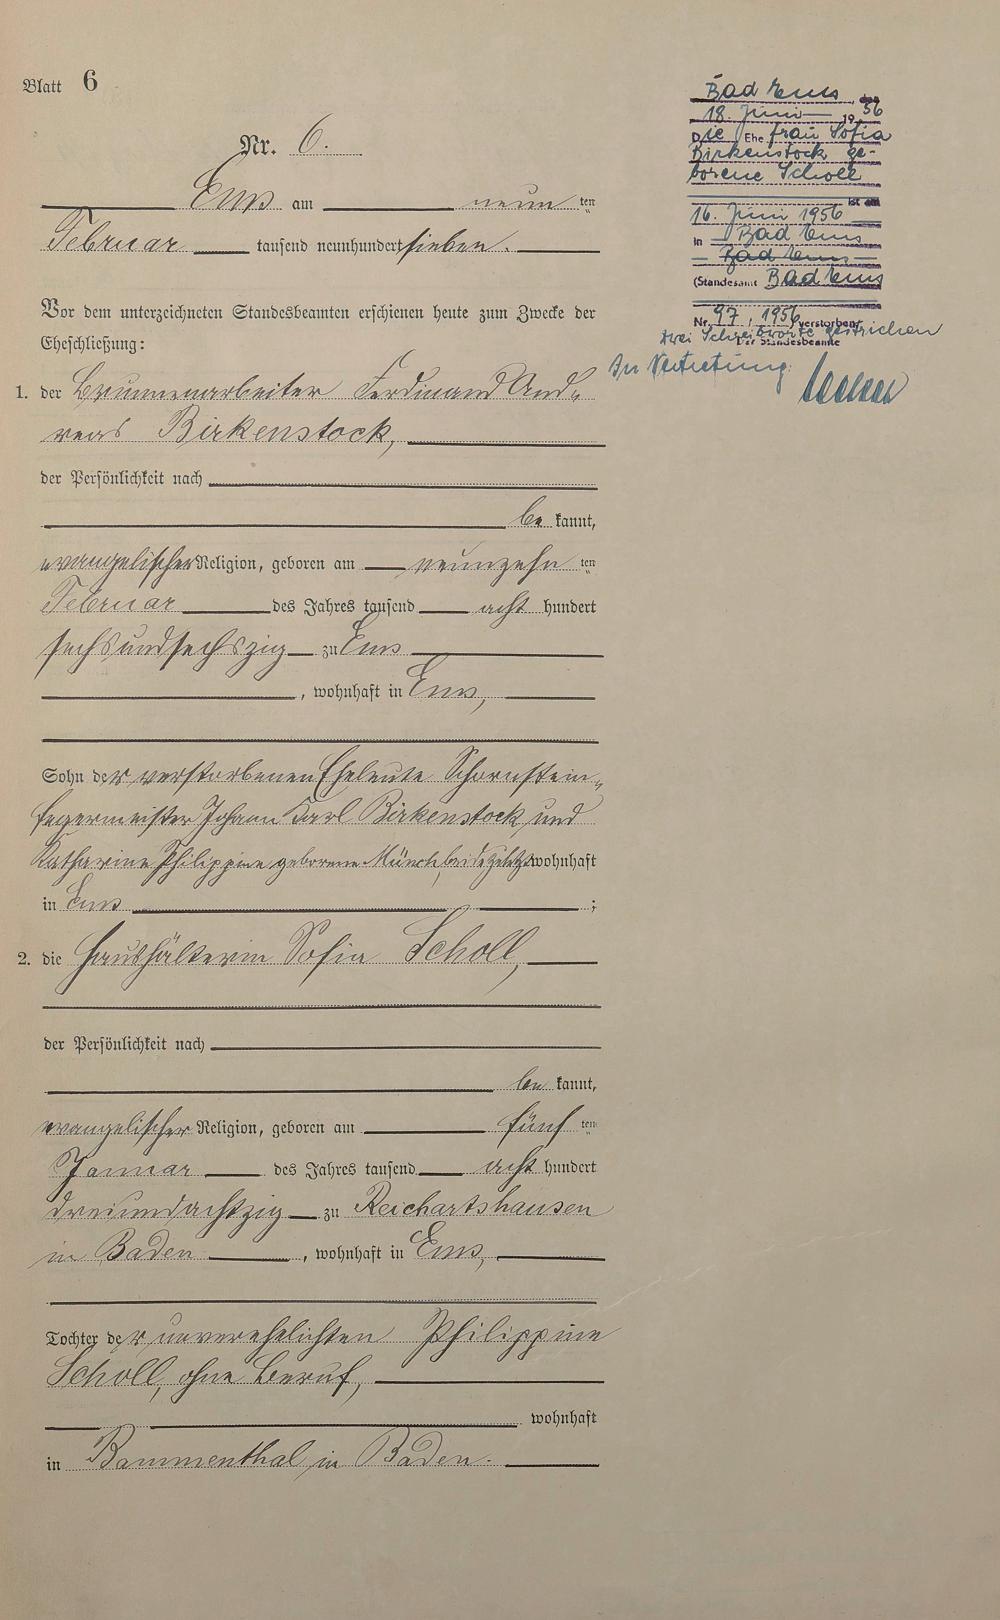 Blatt 6
Nr. 6.
Ems am neun ten
Februar tausend neunhundert sieben.
Vor dem unterzeichneten Standesbeamten erschienen heute zum Zwecke der
Eheschließung:
1. der Brunnenarbeiter Ferdinand And-
reas Birkenstock,
der Persönlichkeit nach
be kannt,
evangelischer Religion, geboren am neunzehn ten
Februar des Jahres tausend acht hundert
sechsundsechszig zu Ems
, wohnhaft in Ems,
Sohn der verstorbenen Eheleute Schornstein-
fegermeister Johann Karl Birkenstock und
Katharine Philippine geborene Münch, beide zuletzt wohnhaft
in Ems ;
2. die Haushälterin Sofia Scholl,
der Persönlichkeit nach
be kannt,
evangelischer Religion, geboren am fünf ten
Januar des Jahres tausend acht hundert
dreiundachtzig zu Reichartshausen
in Baden , wohnhaft in Ems,
Tochter der unverehelichten Philippine
Scholl, ohne Beruf,
wohnhaft
in Bammenthal in Baden.
Bad Ems, den
18. Juni 1956
Die Ehefrau Sofia
Birkenstock ge-
borene Scholl
ist am
16. Juni 1956
in Bad Ems
Bad Ems
(Standesamt Bad Ems
Nr. 97, 1956 verstorben.
zwei Schreibworte gestrichen
Der Standesbeamte
In Vertretung: